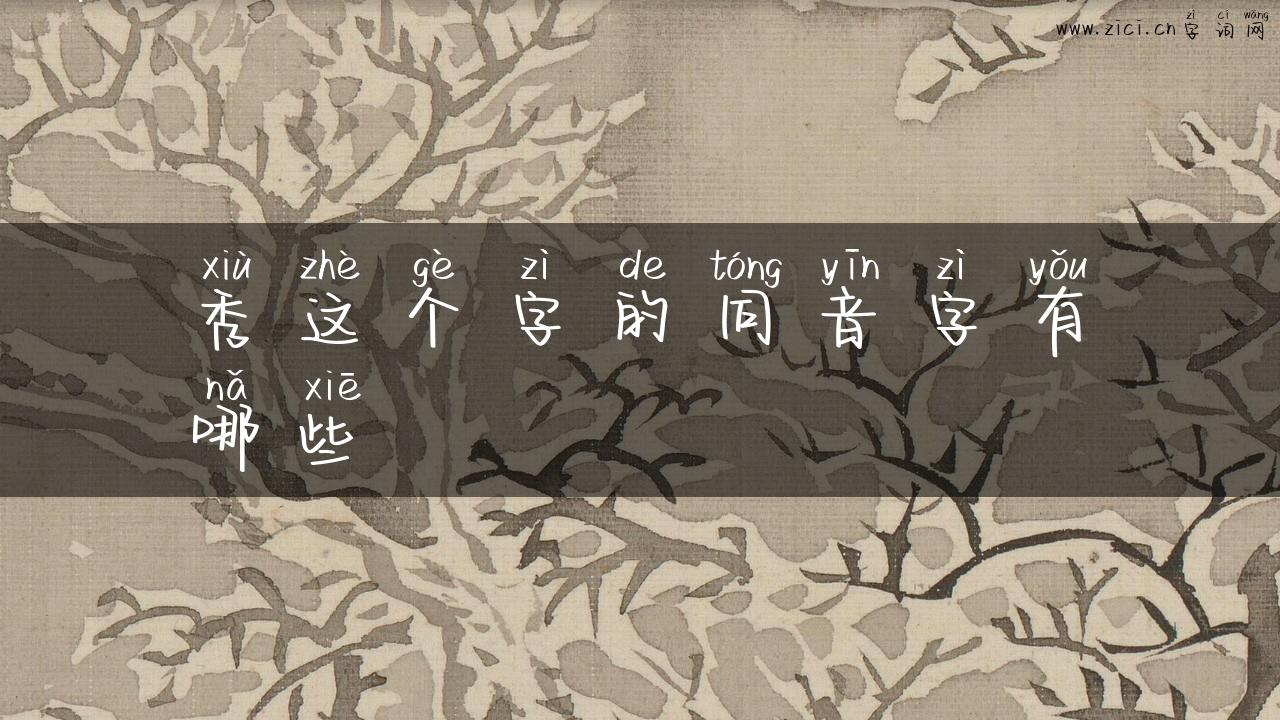 zì cí wǎng
www.zici.cn字词网
xiù zhè gè zì de tóng yīn zì yǒu
秀这个字的同音字有
nǎ xiē
哪些